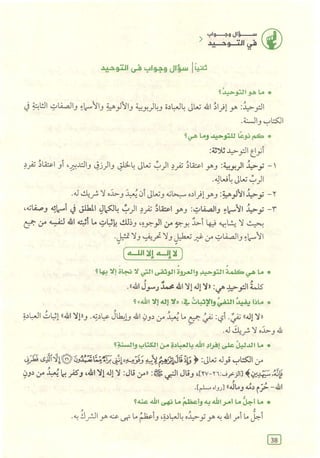 سؤال وجواب
في التوحيد
ثانيا | سؤال وجواب في التوحيد
• ما هو التوحيد؟
التوحيد: هو إفراد الله تعالى بالعبادة وبالربوبية والألوهية والأسماء والصفات الثابتة في
الكتاب والسنة.
• كم نوعا للتوحيد وما هي؟
أنواع التوحيد ثلاثة:
١- توحيد الربوبية: وهو اعتقاد تفرد الرب تعالى بالخلق والرزق والتدبير، أو اعتقاد تفرد
الرب تعالى بأفعاله.
٢- توحيد الألوهية: وهو إفراده سبحانه وتعالى أن يعبد وحده لا شريك له.
٣- توحيد الأسماء والصفات: وهو اعتقاد تفرد الرب بالكمال المطلق في أسمائه وصفاته،
بحيث لا يشابهه فيها أحد بوجه من الوجوه، وذلك بإثبات ما أثبته الله لنفسه من جميع
الأسماء والصفات من غير تعطيل ولا تحريف ولا تمثيل.
لا إله إلا الله
• ما هي كلمة التوحيد والعروة الوثقى التي لا نجاة إلا بها؟
كلمة التوحيد هي: «لا إله إلا الله محمد رسول الله».
• ماذا يفيد النفي والإثبات في: «لا إله إلا الله»؟
«لا إله» نفي. أي: نفي جميع ما يعبد من دون الله وإبطال عبادته. و«إلا الله» إثبات العبادة
لله وحده لا شريك له.
• ما الدليل على إفراد الله بالعبادة من الكتاب والسنة؟
من الكتاب قوله تعالى: ﴿وَإِذْ قَالَ إِبْرَاهِيمُ لِأَبِيهِ وَقَوْمِهِ إِنَّنِي بَرَاءٌ مِّمَّا تَعْبُدُونَ ۝ إِلَّا الَّذِي فَطَرَنِي
فَإِنَّهُ سَيَهْدِينِ﴾ [الزخرف: ٢٦-٢٧]، وقال النبي ﷺ: «من قال: لا إله إلا الله، وكفر بما يعبد من دون
الله - حرم دمه وماله» [رواه مسلم].
• ما أجل ما أمر الله به وأعظم ما نهى الله عنه؟
أجل ما أمر الله به هو توحيده بالعبادة، وأعظم ما نهى عنه هو الشرك به.
38